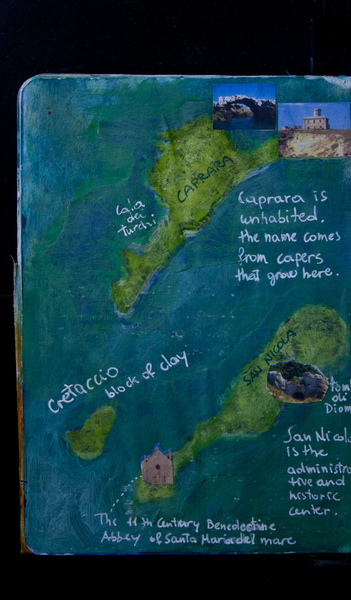 CAPRARA
Cala
dei
turchi
Caprara is
unhabited.
the name comes
from capers
that grow here.
Cretaccio
block of clay
SAN NICOLA
tom
di
Diom
San Nicol
is the
administra
tive and
historic
center.
The 11th Century Benedectine
Abbey of Santa Maria del mare